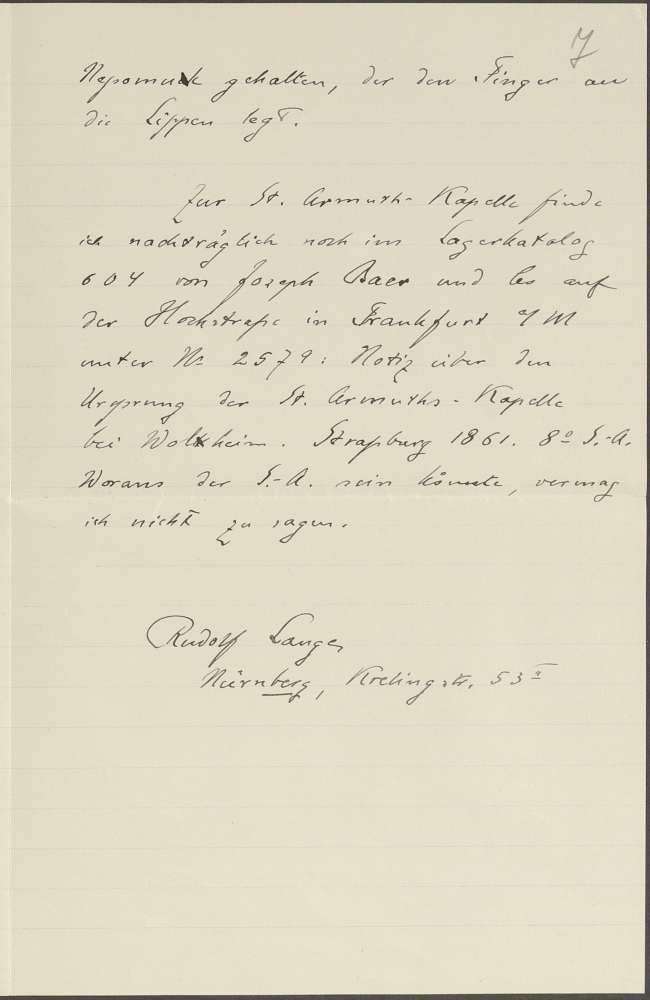 7
Nepomuk gehalten, der den Finger an
die Lippen legt.
Zur St. Armuth-Kapelle finde
ich nachträglich noch im Lagerkatalog
604 von Joseph Baer und Co auf
der Hochstraße in Frankfurt a/M
unter No 2579: Notiz über den
Ursprung der St. Armuths-Kapelle
bei Wolxheim. Straßburg 1861. 8o S.-A.
Woraus der S.-A. sein könnte, vermag
ich nicht zu sagen.
Rudolf Langer
Nürnberg, Krelingstr. 53 II